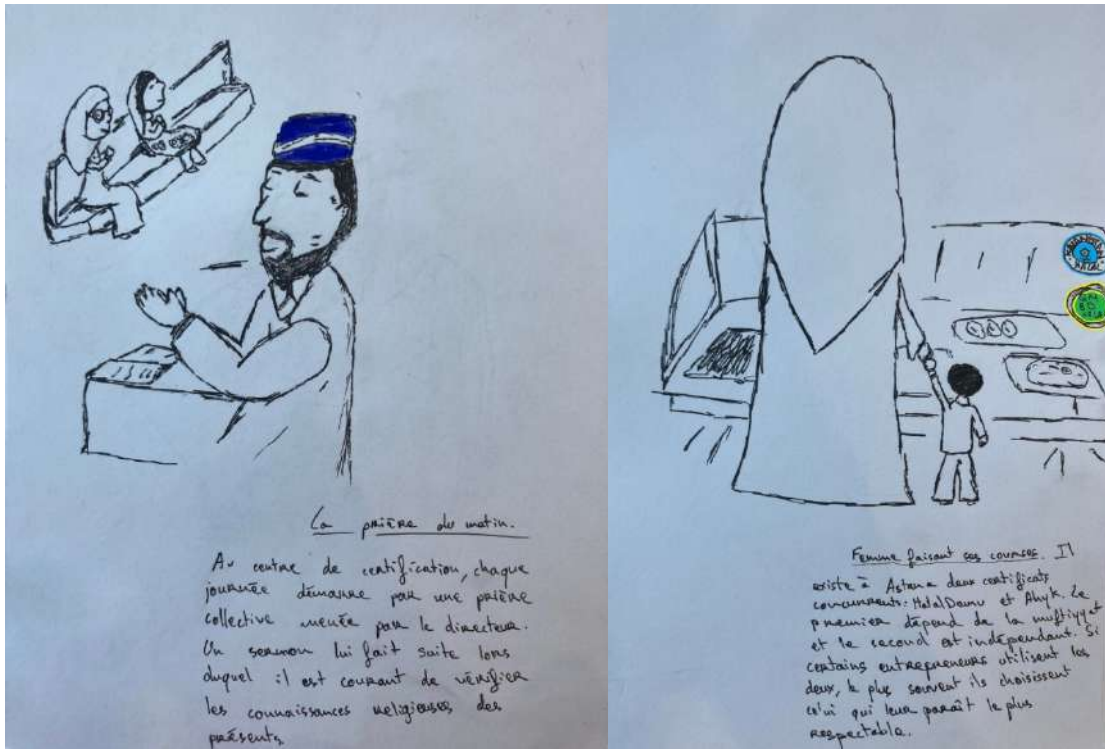 La prière du matin.
Au centre de certification, chaque
journée démarre par une prière
collective menée par le directeur.
Un sermon lui fait suite lors
duquel il est courant de vérifier
les connaissances religieuses des
présents.
HALAL
Femme faisant ses courses. Il
existe à Astana deux certificats
concurrents: HalalDamu et Ahyk. Le
premier dépend de la muftiyyat
et le second est indépendant. Si
certains entrepreneurs utilisent les
deux, le plus souvent ils choisissent
celui qui leur paraît le plus
respectable.